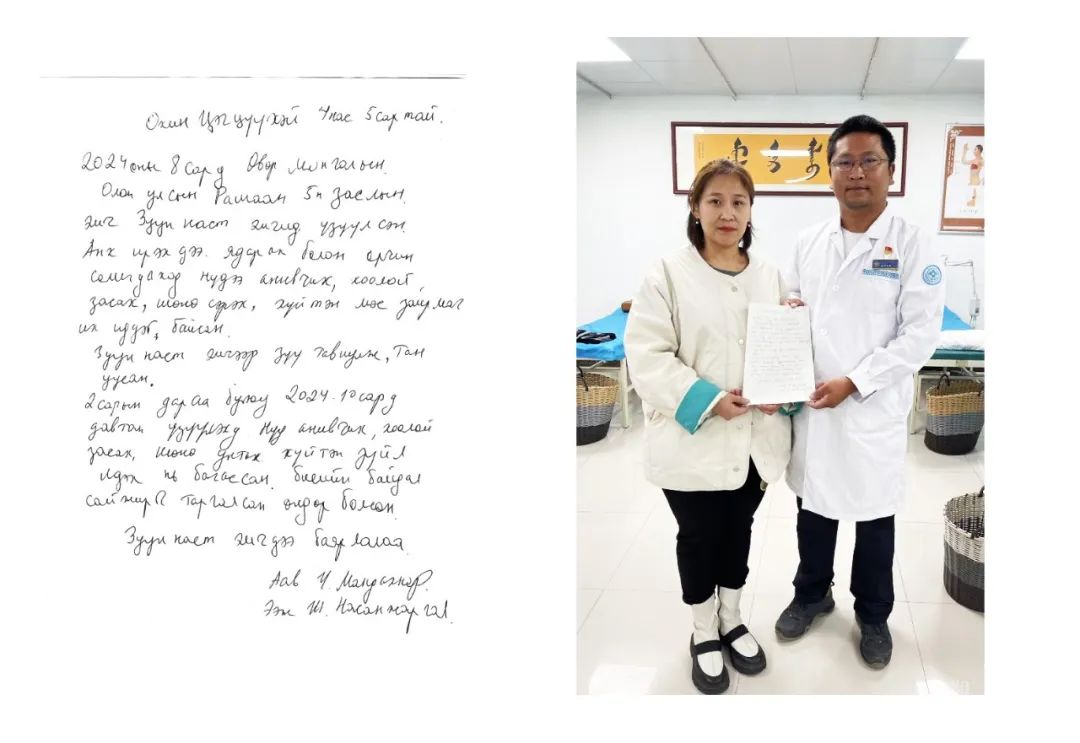 Охин Цэцүүхэй 4 нас 5 сартай.
2024 оны 8 сард Өвөр Монголын
Олон улсын Рашаан 5н заслын
эмч Зуун наст эмчид үзүүлсэн
Анх ирэхдээ ядарах болон орчин
солигдоход нүдээ анивчих, хоолой
засах, шөнө сэрэх, хүйтэн мөс зайрмаг
их иддэг байсан.
Зуун наст эмчээр зүү тавиулж, тан
уусан.
2 сарын дараа буюу 2024.10 сард
давтан үзүүлэхэд нүд анивчих, хоолой
засах, шөнө хүйтэн зүйл
идэх нь багассан. биеийн байдал
сайжирч таргалсан өндөр болсон.
Зуун наст эмчдээ баярлалаа
Аав Ч.
Ээж Ш. Насанжаргал.